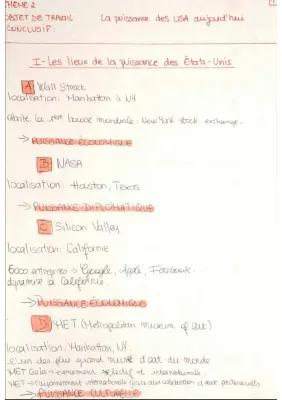 THEME 2
OBJET DE TRAVAIL La puissance des USA aujourd'hui
CONCLUSIF:
I - Les lieux de la puissance des États-Unis
A Wall Street
localisation: Manhattan à NY
abrite la 1ère bourse mondiale: New York stock exchange.
→ PUISSANCE ÉCONOMIQUE
B NASA
localisation: Houston, Texas
→ PUISSANCE DIPLOMATIQUE
C Silicon Valley
localisation: Californie
6000 entreprises → Google, Apple, Facebook.
dynamise la Californie.
→ PUISSANCE ÉCONOMIQUE
D MET (Metropolitan museum of art)
localisation: Manhattan, NY.
un des plus grand musée d'art du monde
MET Gala → évènement sélectif et internationale.
MET → rayonnement internationale grâce aux collaboration
→ PUISSANCE CULTURELLE